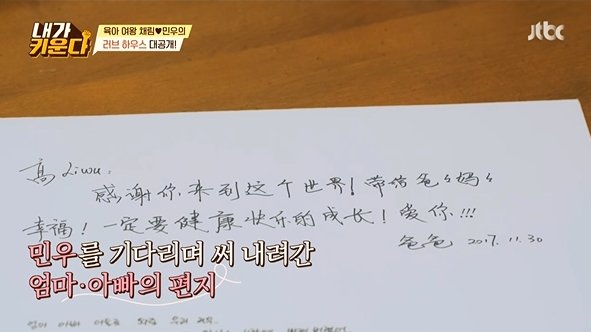 내가
키운다
육아 여왕 채림♥민우의
러브 하우스 대공개!
jtbc
高Liwu:
感谢你来到这个世界!带给爸々妈々
幸福!一定要健康快乐的成长!爱你!!!
爸爸 2017.11.30
민우를 기다리며 써 내려간
엄마·아빠의 편지
엄마 아빠
우리